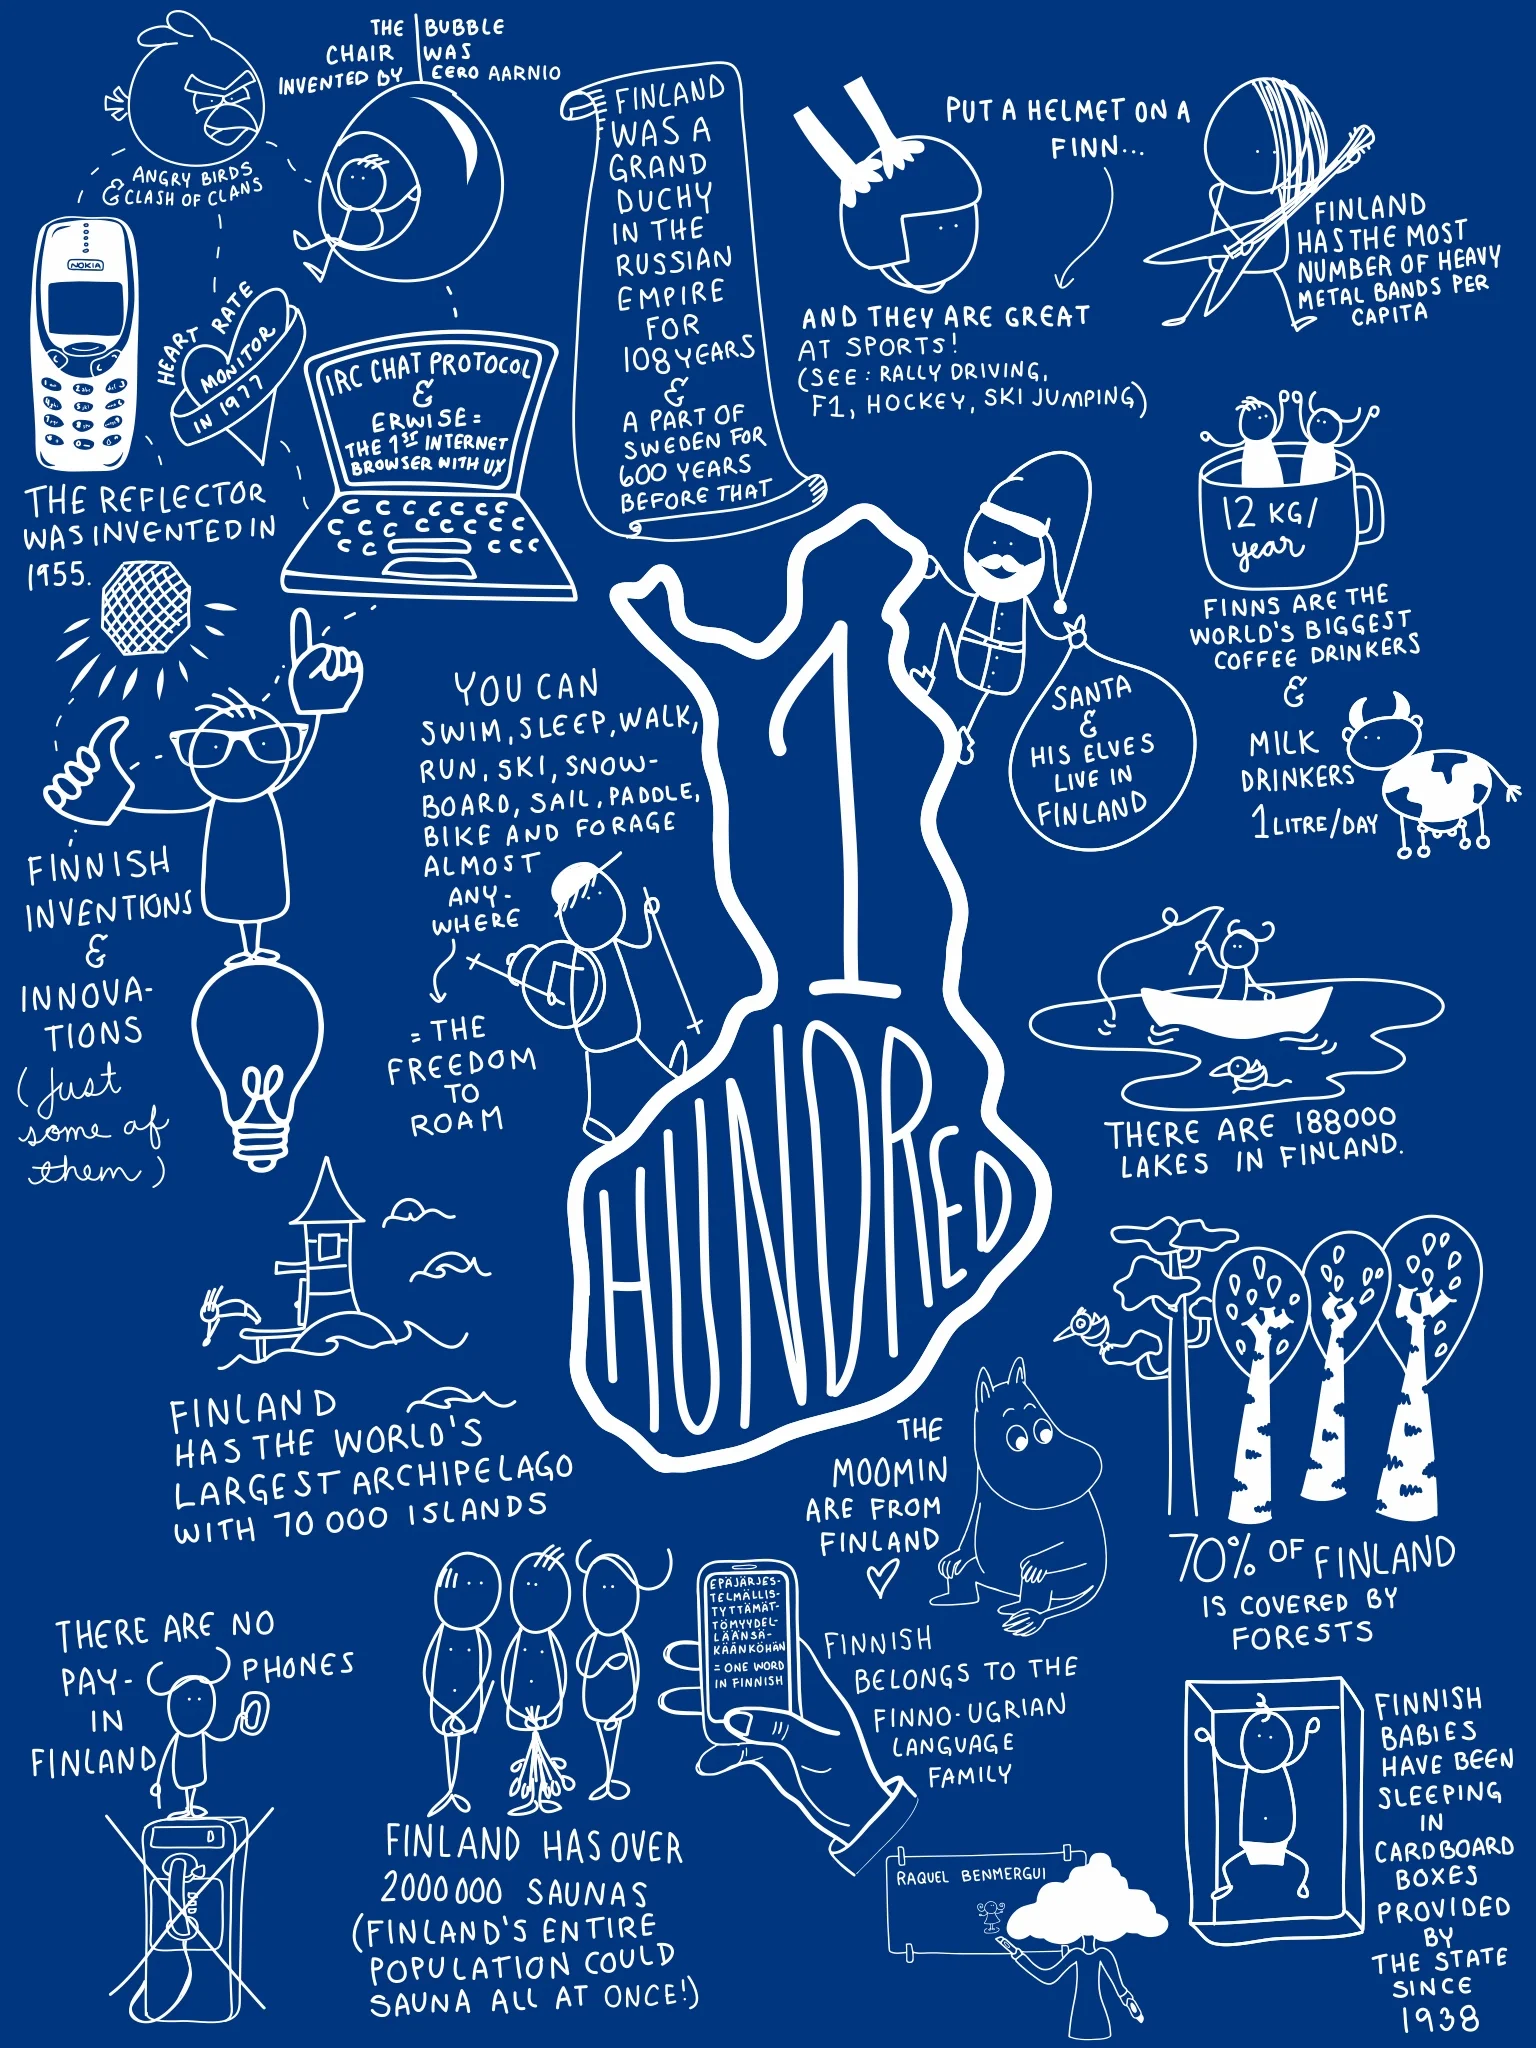 THE BUBBLE
CHAIR WAS
INVENTED BY EERO AARNIO
ANGRY BIRDS
& CLASH OF CLANS
NOKIA
HEART RATE
MONITOR
IN 1977
IRC CHAT PROTOCOL
&
ERWISE =
THE 1ST INTERNET
BROWSER WITH UX
THE REFLECTOR
WAS INVENTED IN
1955.
FINNISH
INVENTIONS
&
INNOVA-
TIONS
(Just
some of
them)
FINLAND
WAS A
GRAND
DUCHY
IN THE
RUSSIAN
EMPIRE
FOR
108 YEARS
&
A PART OF
SWEDEN FOR
600 YEARS
BEFORE THAT
PUT A HELMET ON A
FINN...
AND THEY ARE GREAT
AT SPORTS!
(SEE: RALLY DRIVING,
F1, HOCKEY, SKI JUMPING)
FINLAND
HAS THE MOST
NUMBER OF HEAVY
METAL BANDS PER
CAPITA
12 KG/
year
FINNS ARE THE
WORLD'S BIGGEST
COFFEE DRINKERS
&
MILK
DRINKERS
1 LITRE/DAY
SANTA
&
HIS ELVES
LIVE IN
FINLAND
YOU CAN
SWIM, SLEEP, WALK,
RUN, SKI, SNOW-
BOARD, SAIL, PADDLE,
BIKE AND FORAGE
ALMOST
ANY-
WHERE
= THE
FREEDOM
TO
ROAM
1
HUNDRED
THERE ARE 188000
LAKES IN FINLAND.
FINLAND
HAS THE WORLD'S
LARGEST ARCHIPELAGO
WITH 70 000 ISLANDS
THE
MOOMIN
ARE FROM
FINLAND
70% OF FINLAND
IS COVERED BY
FORESTS
THERE ARE NO
PAY- PHONES
IN
FINLAND
FINLAND HAS OVER
2000 000 SAUNAS
(FINLAND'S ENTIRE
POPULATION COULD
SAUNA ALL AT ONCE!)
EPÄJÄRJES-
TELMÄLLIS-
TYTTÄMÄT-
TÖMYYDEL-
LÄÄNSÄ-
KÄÄNKÖHÄN
= ONE WORD
IN FINNISH
FINNISH
BELONGS TO THE
FINNO-UGRIAN
LANGUAGE
FAMILY
RAQUEL BENMERGUI
FINNISH
BABIES
HAVE BEEN
SLEEPING
IN
CARDBOARD
BOXES
PROVIDED
BY
THE STATE
SINCE
1938